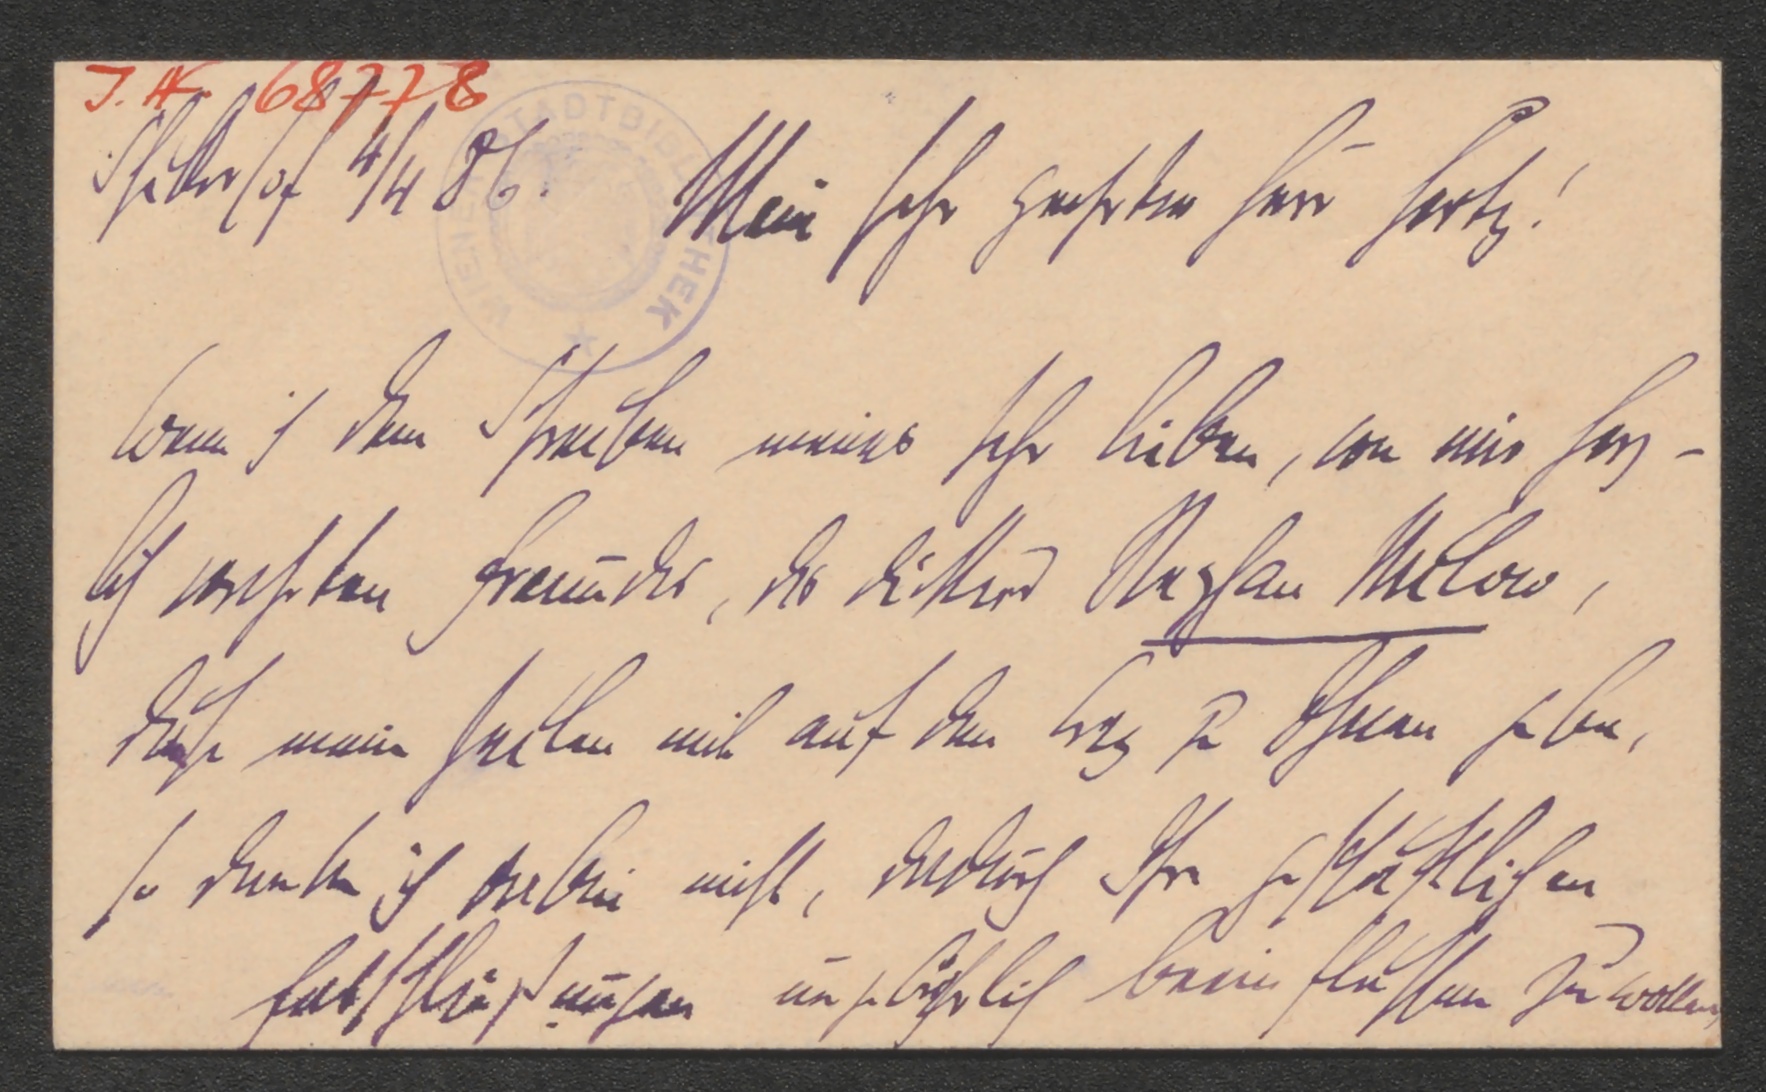 J. N. 68778
WIENER STADTBIBLIOTHEK
4/4 86. Mein sehr geehrter Herr Hertz!
Wenn ich dem Schreiben meines sehr lieben, von mir herz-
lich verehrten Freundes, des Dichters Stephan Milow,
diese meine Zeilen mit auf den Weg zu Ihnen gebe,
so denke ich dabei nicht, dadurch Ihre geschäftlichen
Entschließungen ungebührlich beeinflussen zu wollen,